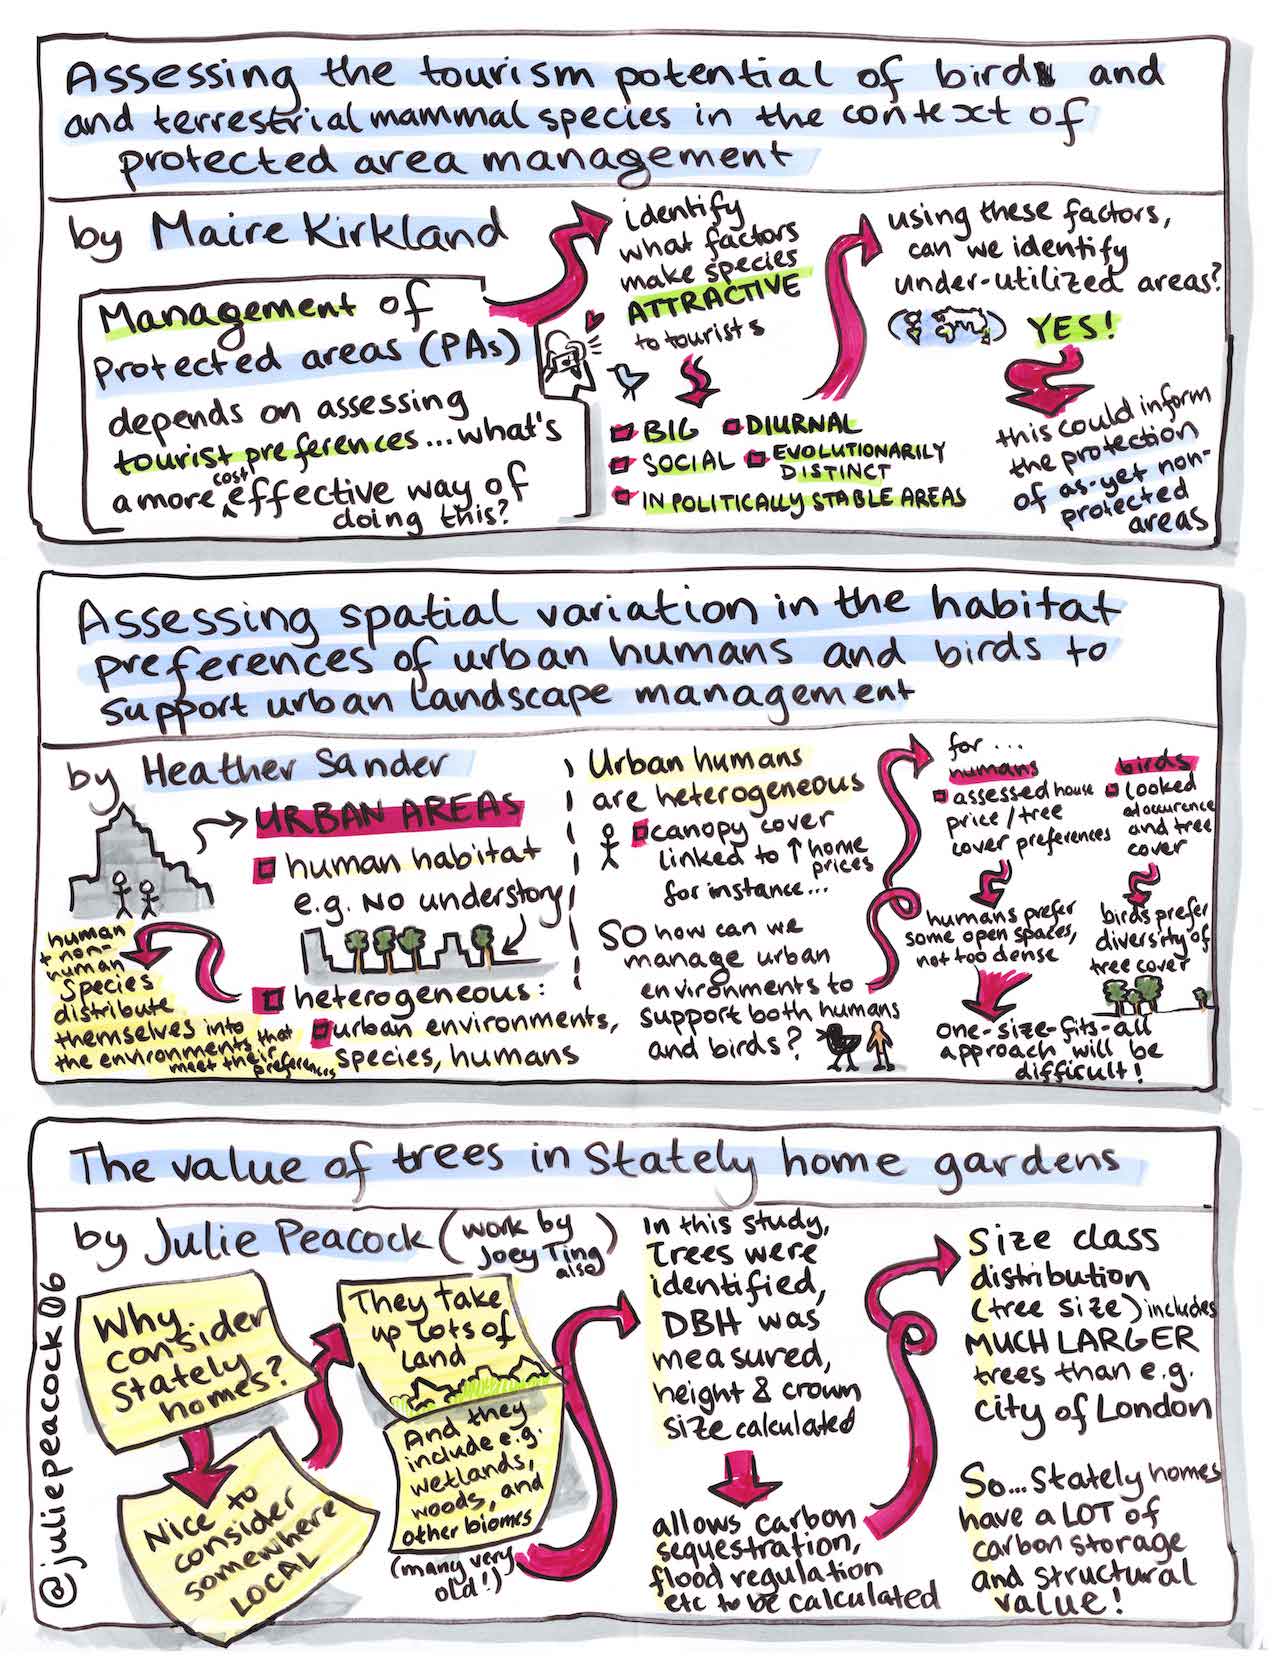 Assessing the tourism potential of birds and
and terrestrial mammal species in the context of
protected area management
by Maire Kirkland
Management of
Protected areas (PAs)
depends on assessing
tourist preferences... what's
a more cost effective way of
doing this?
identify
what factors
make species
ATTRACTIVE
to tourists
BIG
DIURNAL
SOCIAL
EVOLUTIONARILY
DISTINCT
IN POLITICALLY STABLE AREAS
using these factors,
can we identify
under-utilized areas?
YES!
this could inform
the protection
of as-yet non-
protected
areas
Assessing spatial variation in the habitat
preferences of urban humans and birds to
support urban landscape management
by Heather Sander
URBAN AREAS
human habitat
e.g. NO understory
heterogeneous:
urban environments,
species, humans
human
+ non-
human
species
distribute
themselves into
the environments that
meet their
preferences
Urban humans
are heterogeneous
canopy cover
linked to ↑ home
prices
for instance...
SO how can we
manage urban
environments to
support both humans
and birds?
for...
humans
assessed house
price/tree
cover preferences
humans prefer
some open spaces,
not too dense
birds
looked
at occurence
and tree
cover
birds prefer
diversity of
tree cover
one-size-fits-all
approach will be
difficult!
The value of trees in Stately home gardens
by Julie Peacock (work by
Joey Ting
also)
@juliepeacock06
Why
consider
Stately
homes?
Nice to
consider
somewhere
LOCAL
They take
up lots of
land
And they
include e.g.
wetlands,
woods, and
other biomes
(many very
old!)
In this study,
trees were
identified,
DBH was
measured,
height & crown
size calculated
allows carbon
sequestration,
flood regulation
etc to be calculated
Size class
distribution
(tree size) includes
MUCH LARGER
trees than e.g.
city of London
So... Stately homes
have a LOT of
carbon storage
and structural
value!